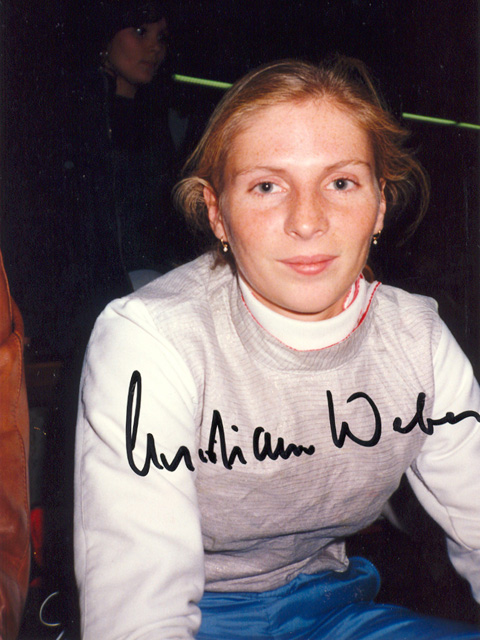 Christiane Weber